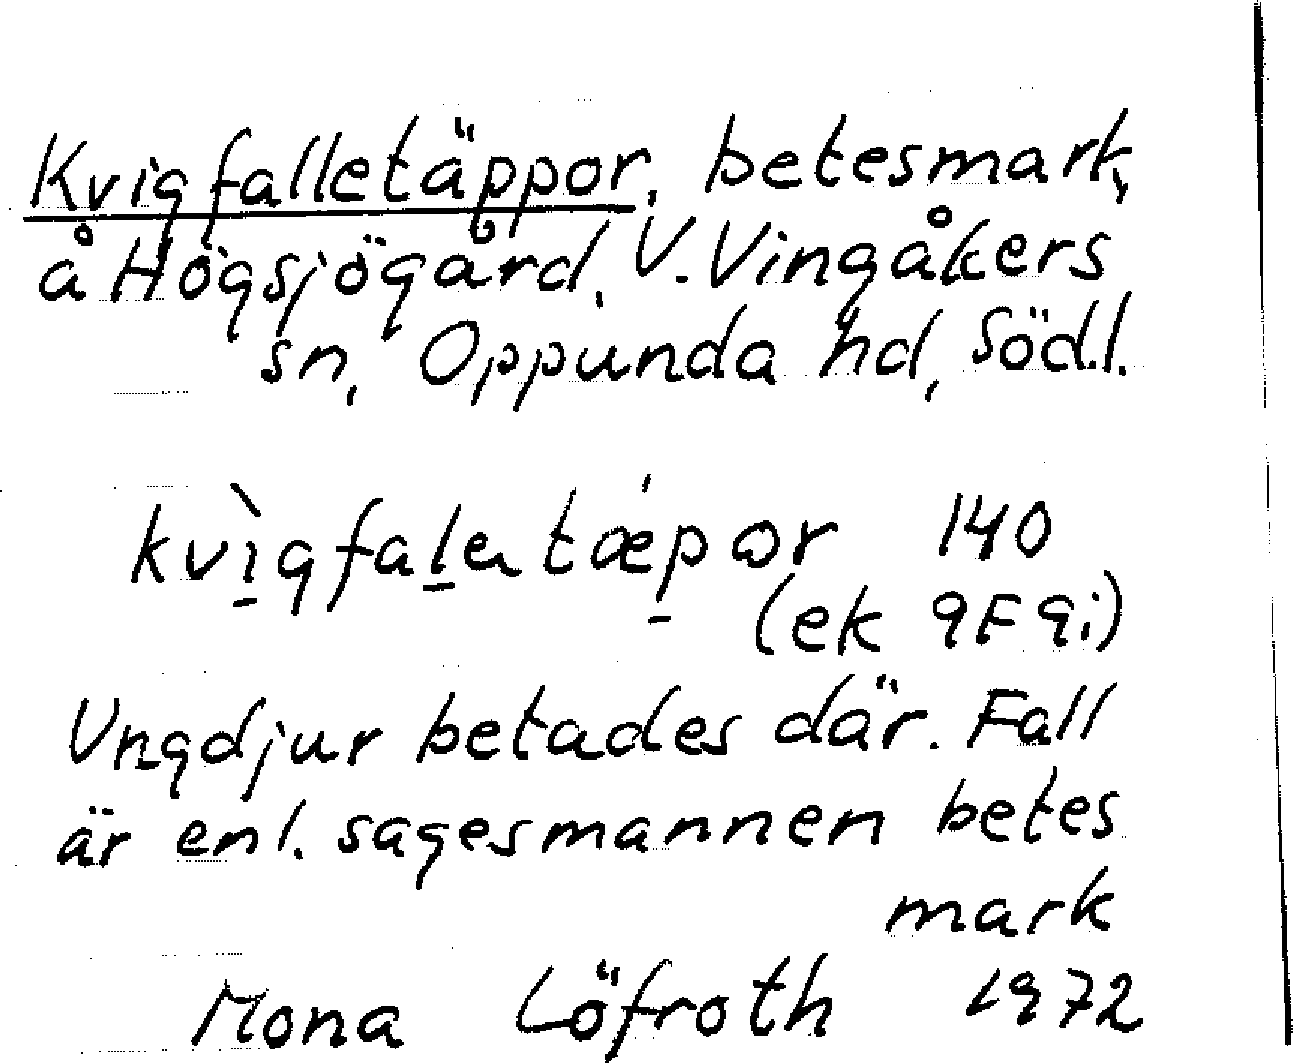 Kvigfalletäppor, betesmark,
å Högsjögård, V. Vingåkers
sn, Oppunda hd, Södl.
140
(ek 9F 9i)
Ungdjur betades där. Fall
är enl. sagesmannen betes
mark
Mona Löfroth 1972